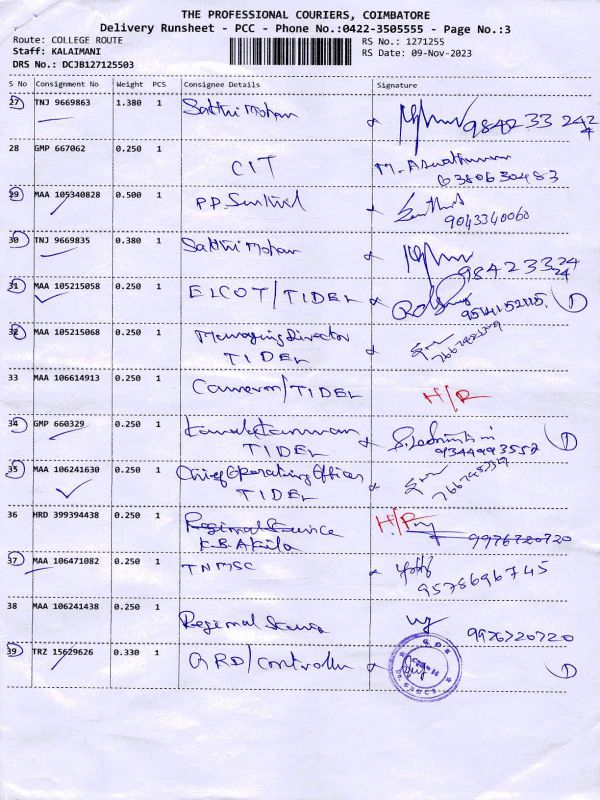 THE PROFESSIONAL COURIERS, COIMBATORE
Delivery Runsheet - PCC - Phone No.:0422-3505555 - Page No.:3
Route: COLLEGE ROUTE
RS No.: 1271255
Staff: KALAIMANI
RS Date: 09-Nov-2023
DRS No.: DCJB127125503
S No Consignment No Weight PCS Consignee Details Signature
27 TNJ 9669863 1.380 1 Sakthi Mohan 984233 24 24
28 GMP 667062 0.250 1 CIT
6380630483
29 MAA 105340828 0.500 1 P.P.
9043340060
30 TNJ 9669835 0.380 1 Sakthi Mohan 9842332424
31 MAA 105215058 0.250 1 ELCOT/TIDEL
32 MAA 105215068 0.250 1 Managing Director
TIDEL
33 MAA 106614913 0.250 1 Cameron/TIDEL H/R
34 GMP 660329 0.250 1
TIDEL 9344993552
35 MAA 106241630 0.250 1 Chief Operating Officer
TIDEL
36 HRD 399394438 0.250 1 Regional H/R
K.B. Akila 9976720720
37 MAA 106471082 0.250 1 TNMSC
9578696745
38 MAA 106241438 0.250 1 Regional
9976720720
39 TRZ 15629626 0.330 1